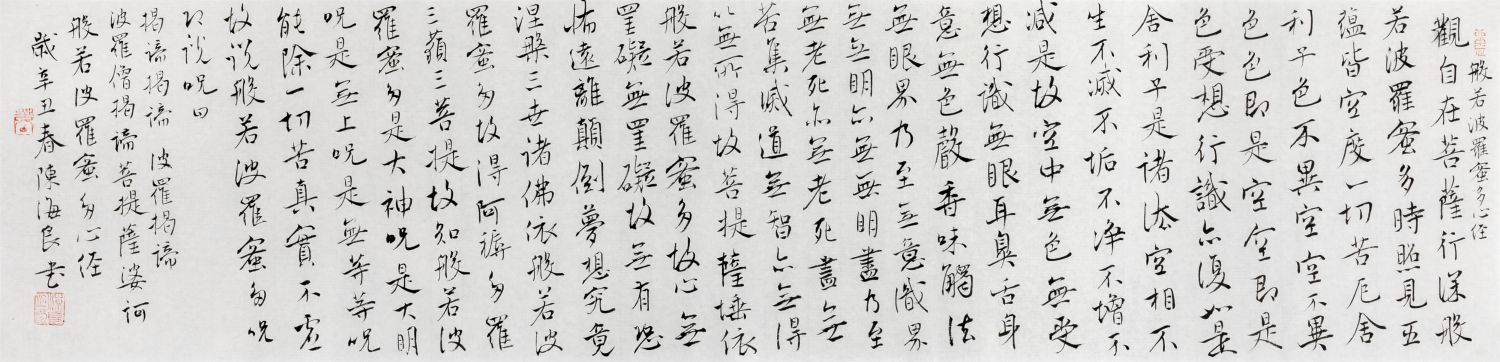 般若波羅蜜多心经
觀自在菩薩行深般
若波羅蜜多時照見五
蕴皆空度一切苦厄舍
利子色不異空空不異
色色即是空空即是
色受想行識亦復如是
舍利子是诸法空相不
生不滅不垢不净不增不
减是故空中無色無受
想行識無眼耳鼻舌身
意無色聲香味觸法
無眼界乃至無意識界
無無明亦無無明盡乃至
無老死亦無老死盡無
苦集滅道無智亦無得
以無所得故菩提薩埵依
般若波羅蜜多故心無
罣礙無罣礙故無有恐
怖遠離顛倒夢想究竟
涅槃三世诸佛依般若波
羅蜜多故得阿耨多羅
三藐三菩提故知般若波
羅蜜多是大神咒是大明
咒是無上咒是無等等咒
能除一切苦真實不虚
故说般若波羅蜜多咒
即说咒曰
揭谛揭谛 波羅揭谛
波羅僧揭谛菩提薩婆訶
般若波羅蜜多心经
歲辛丑春陳海良书